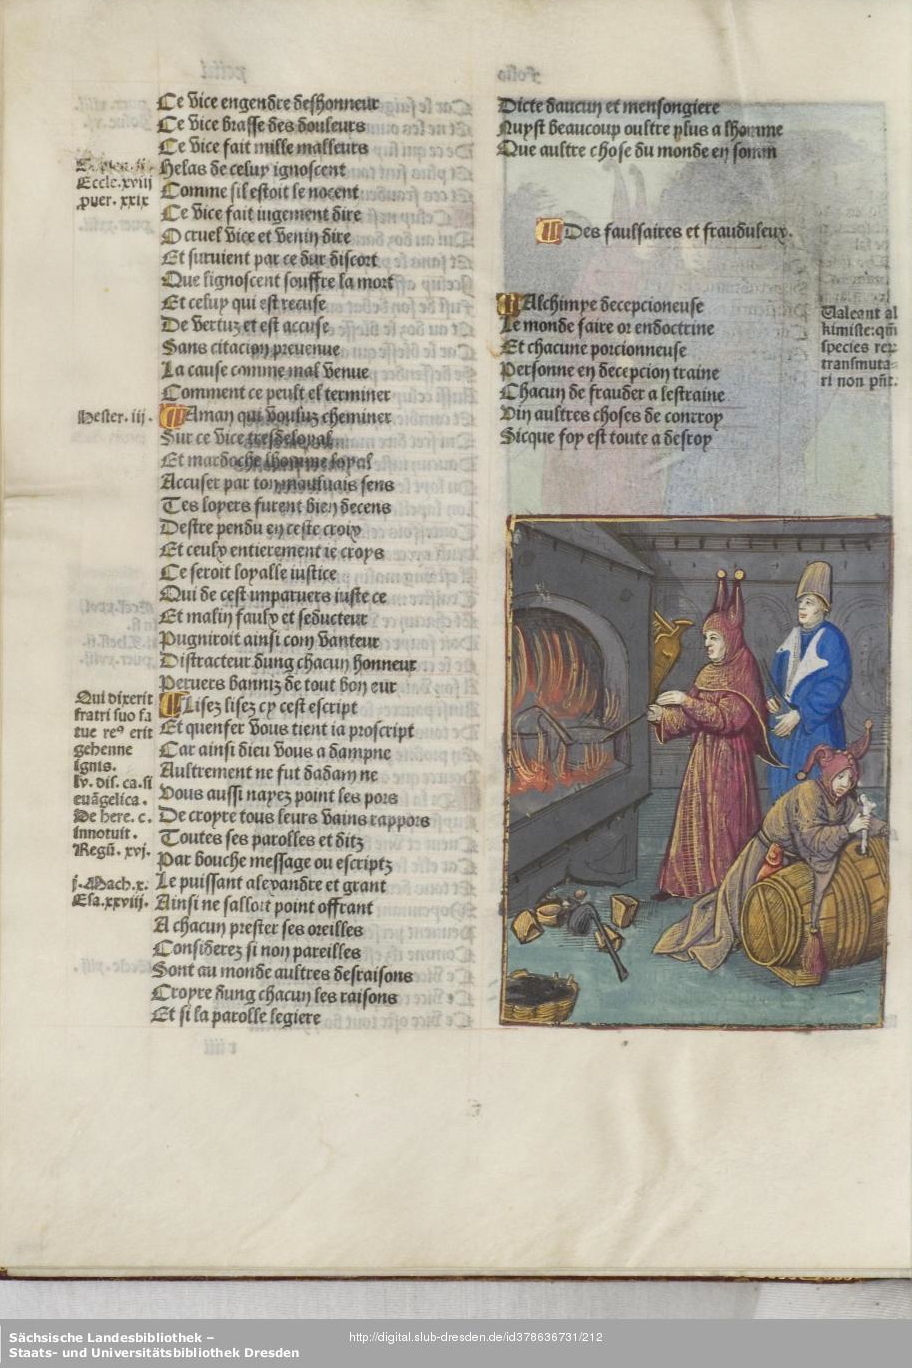 Ce vice engendre deshonneur
Ce vice brasse des douleurs
Ce vice fait mille malleurs
Helas de celuy ignoscent
Comme sil estoit le nocent
Ce vice fait iugement dire
O cruel vice et venin dire
Et suruient par ce dur discort
Que lignoscent souffre la mort
Et celuy qui est recuse
De vertuz et est accuse
Sans citacion preuenue
La cause comme mal venue
Comment ce peult el terminer
Aman qui voulus cheminer
Sur ce vice tresdeloyal
Et mardochee lhomme loyal
Accuser par ton mauluais sens
Tes loyers furent bien decens
Destre pendu en ceste croix
Et ceulx entierement ie croys
Ce seroit loyalle iustice
Qui de cest imparuers iuste ce
Et malin faulx et seducteur
Pugniroit ainsi com vanteur
Distracteur dung chacun honneur
Peruers banniz de tout bon eur
Lisez lisez cy cest escript
Et quenfer vous tient ia proscript
Car ainsi dieu vous a dampne
Aultrement ne fut dadam ne
Vous aussi nayez point les pors
De croyre tous leurs vains rappors
Toutes ses parolles et ditz
Par bouche message ou escriptz
Le puissant alexandre et grant
Ainsi ne salloit point offrant
A chacun prester ses oreilles
Considerez si non pareilles
Sont au monde aultres desraisons
Croyre dung chacun les raisons
Et si la parolle legiere
Eccle. xviii
puer. xxix
Hester. iij.
Qui dixerit
fratri suo fa
tue reꝰ erit
gehenne
ignis.
lv. dis. ca. si
euāgelica.
De here. c.
innotuit.
Regū. xvj.
j. Mach. x.
Esa. xxviij.
Dicte daucun et mensongiere
Nuyst beaucoup oultre plus a lhomme
Que aultre chose du monde en somm
Des faulsaires et frauduleux.
Alchimye decepcioneuse
Le monde faire or endoctrine
Et chacune porcionneuse
Personne en decepcion traine
Chacun de frauder a lestraine
Vin aultres choses de conrroy
Sicque foy est toute a desroy
Valeant al
kimiste: qm̄
species rex
transmuta-
ri non pn̄t.
Sächsische Landesbibliothek –
Staats- und Universitätsbibliothek Dresden
http://digital.slub-dresden.de/id378636731/212